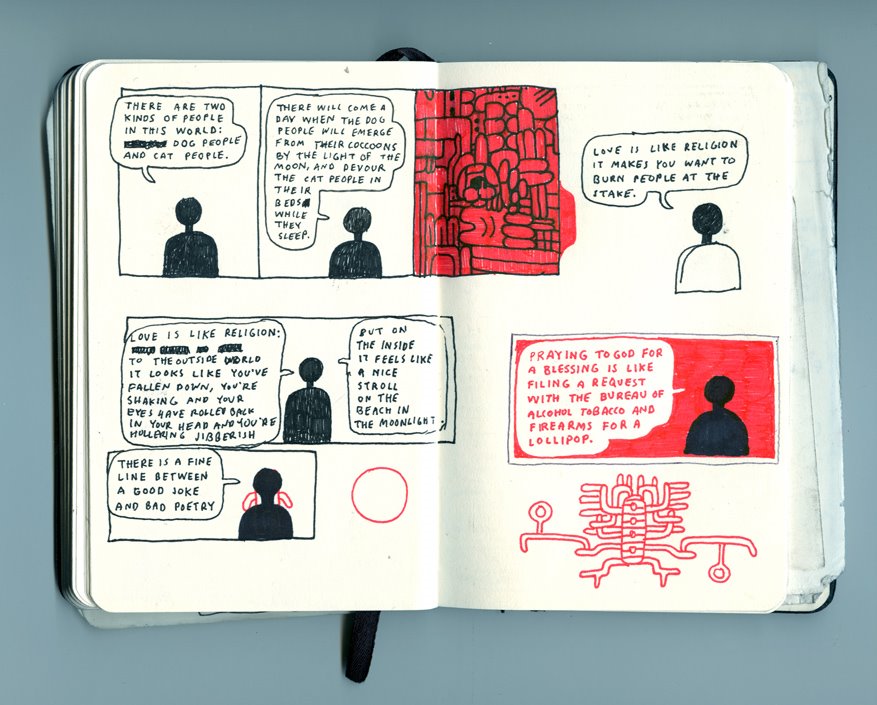 THERE ARE TWO
KINDS OF PEOPLE
IN THIS WORLD:
DOG PEOPLE
AND CAT PEOPLE.
THERE WILL COME A
DAY WHEN THE DOG
PEOPLE WILL EMERGE
FROM THEIR COCCOONS
BY THE LIGHT OF THE
MOON, AND DEVOUR
THE CAT PEOPLE IN
THEIR
BEDS
WHILE
THEY
SLEEP.
LOVE IS LIKE RELIGION
IT MAKES YOU WANT TO
BURN PEOPLE AT THE
STAKE.
LOVE IS LIKE RELIGION:
TO THE OUTSIDE WORLD
IT LOOKS LIKE YOU'VE
FALLEN DOWN, YOU'RE
SHAKING AND YOUR
EYES HAVE ROLLED BACK
IN YOUR HEAD AND YOU'RE
HOLLERING JIBBERISH
BUT ON
THE INSIDE
IT FEELS LIKE
A NICE
STROLL
ON THE
BEACH IN
THE MOONLIGHT.
THERE IS A FINE
LINE BETWEEN
A GOOD JOKE
AND BAD POETRY
PRAYING TO GOD FOR
A BLESSING IS LIKE
FILING A REQUEST
WITH THE BUREAU OF
ALCOHOL TOBACCO AND
FIREARMS FOR A
LOLLIPOP.